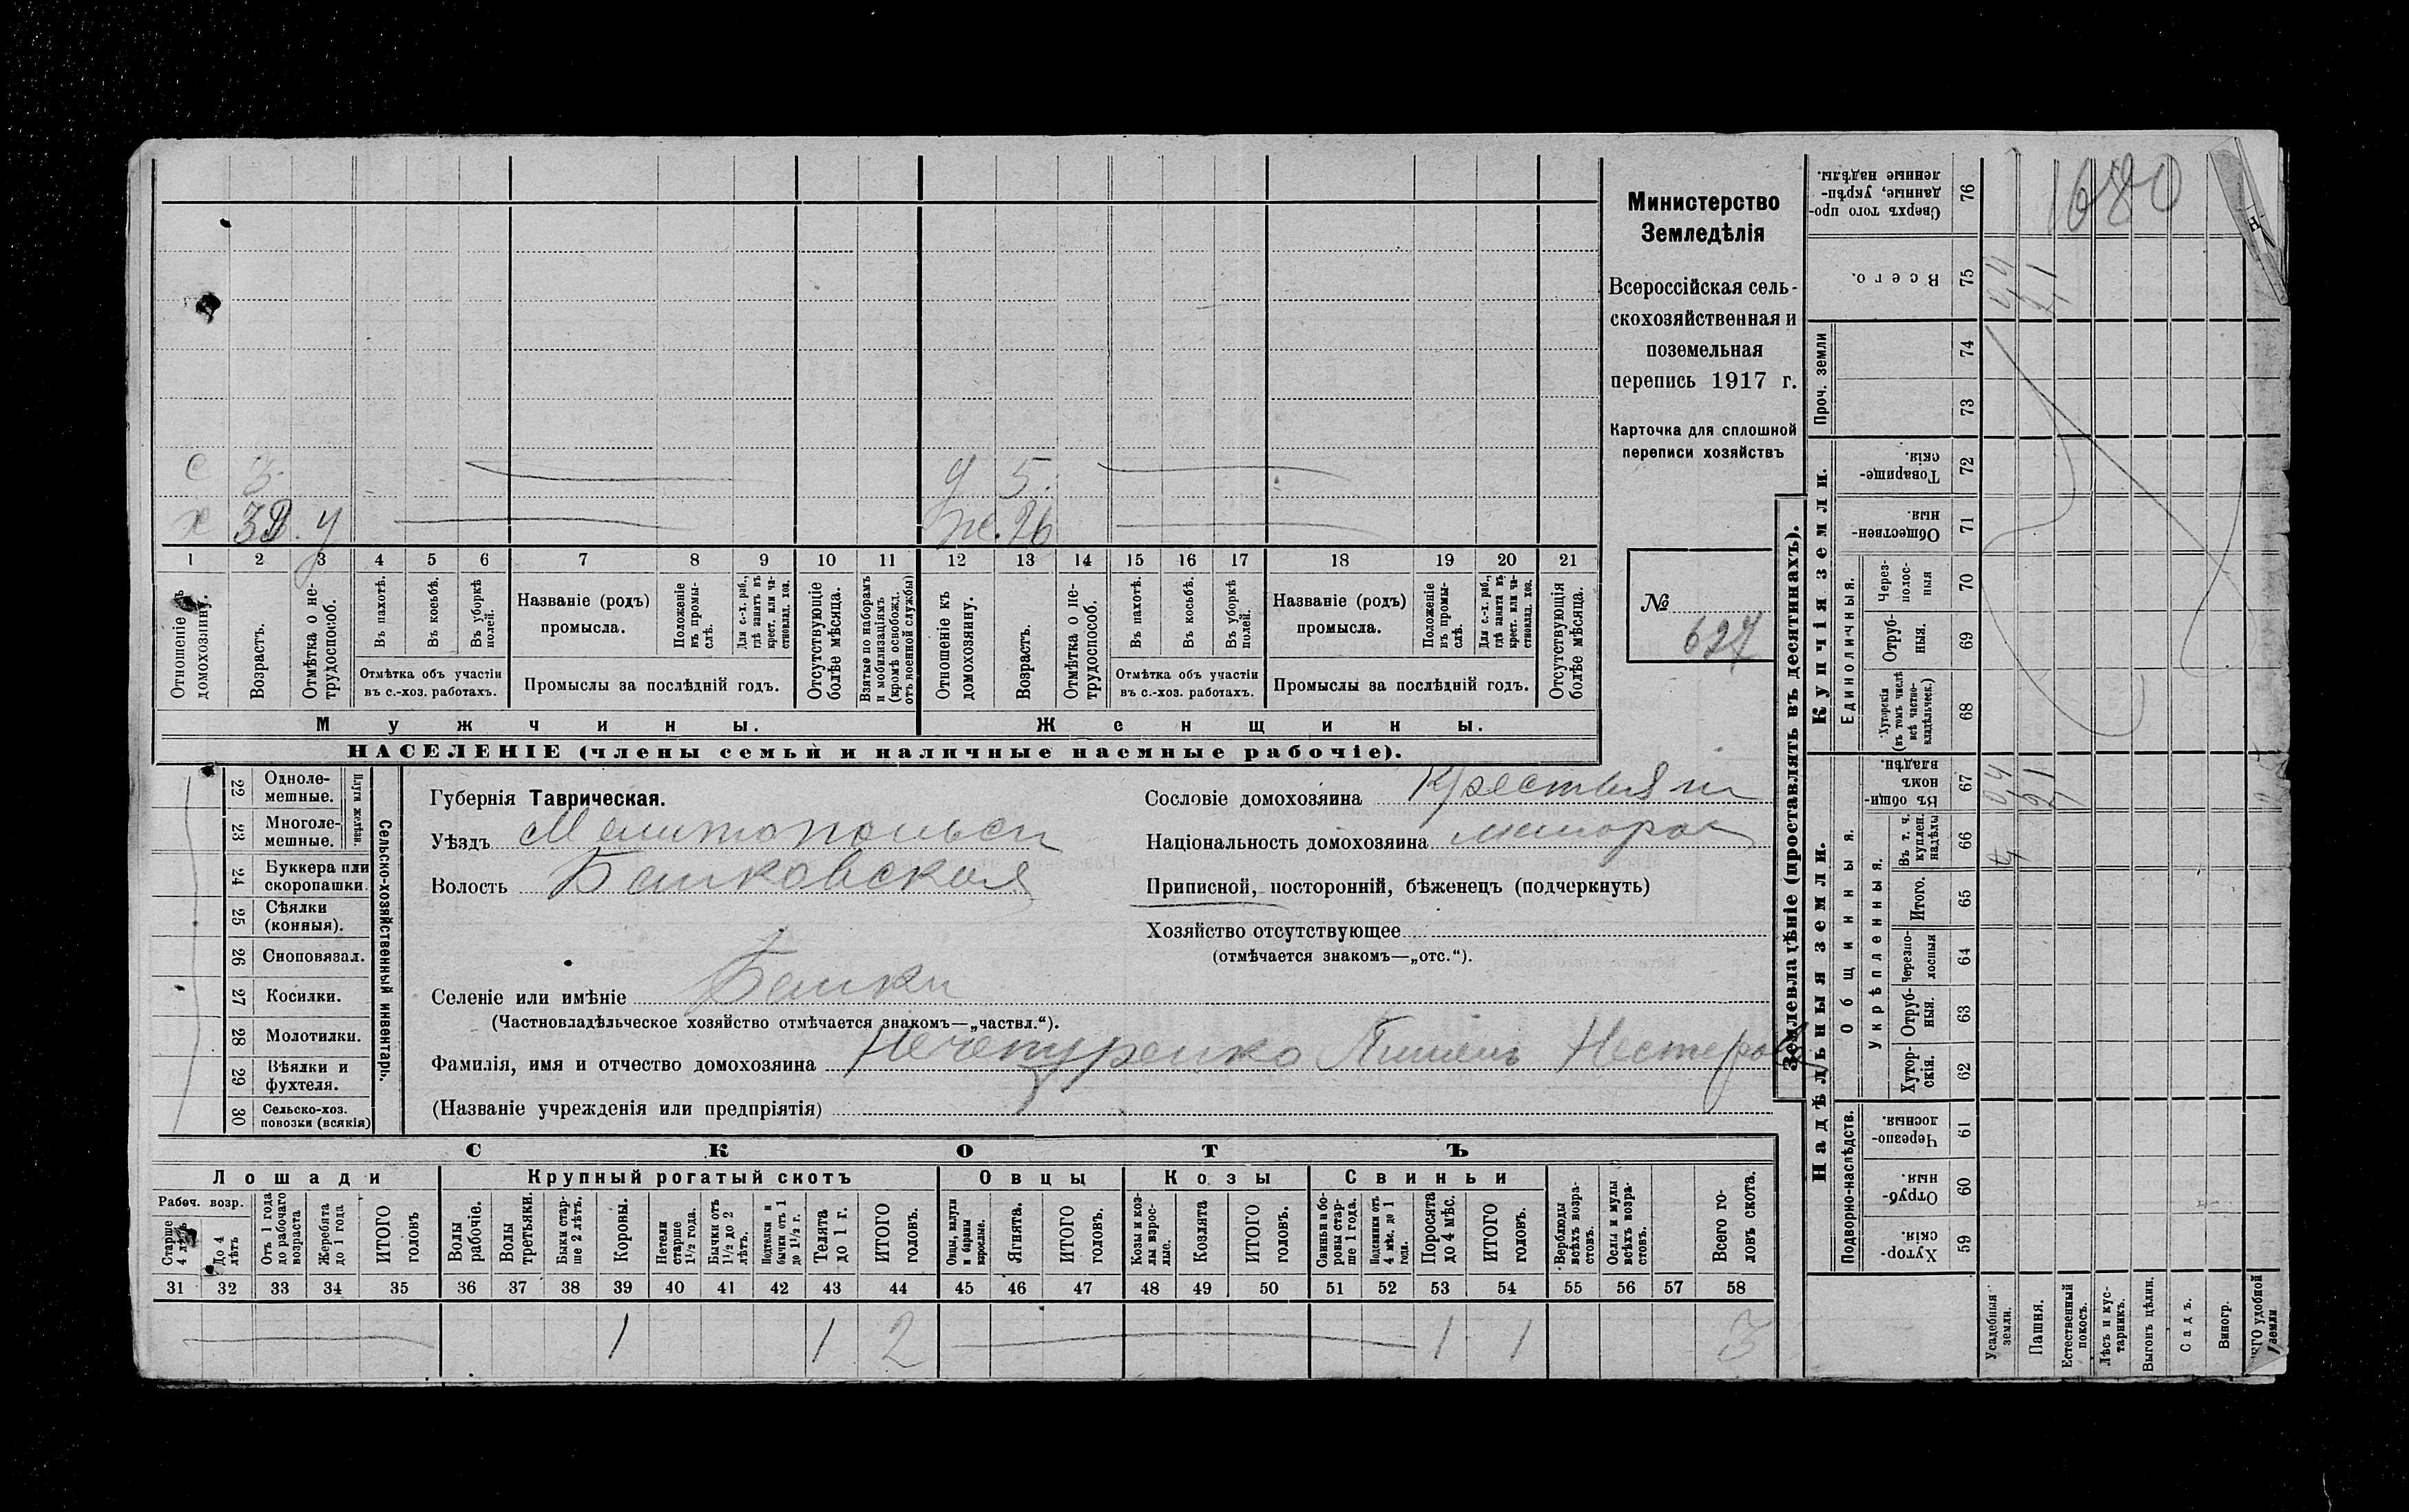 с 3. д 5.
х 32. у ж. 26
1 2 3 4 5 6 7 8 9 10 11 12 13 14 15 16 17 18 19 20 21
Отношеніе къ домохозяину.
Возрастъ.
Отмѣтка о не-
трудоспособ.
Въ пахотѣ.
Въ косьбѣ.
Въ уборкѣ
полей.
Отмѣтка объ участіи
въ с.-хоз. работахъ.
Названіе (родъ)
промысла.
Положеніе
въ промы-
слѣ.
Для с.-х. раб.,
гдѣ занятъ въ
крест. или ча-
стновлад. хоз.
Промыслы за послѣдній годъ.
Отсутствующіе
болѣе мѣсяца.
Взятые по наборамъ
и мобилизаціямъ
(кромѣ освобожд.
отъ военной службы)
Отношеніе къ
домохозяину.
Возрастъ.
Отмѣтка о не-
трудоспособ.
Въ пахотѣ.
Въ косьбѣ.
Въ уборкѣ
полей.
Отмѣтка объ участіи
въ с.-хоз. работахъ.
Названіе (родъ)
промысла.
Положеніе
въ промы-
слѣ.
Для с.-х. раб.,
гдѣ занята въ
крест. или ча-
стновлад. хоз.
Промыслы за послѣдній годъ.
Отсутствующія
болѣе мѣсяца.
Мужчины.
Женщины.
НАСЕЛЕНІЕ (члены семьи и наличные наемные рабочіе).
Министерство
Земледѣлія
Всероссійская сель-
скохозяйственная и
поземельная
перепись 1917 г.
Карточка для сплошной
переписи хозяйствъ
№
627
22 Одноле-
мешные.
23 Многоле-
мешные.
Плуги желѣзн.
24 Буккера или
скоропашки.
25 Сѣялки
(конныя).
26 Сноповязал.
27 Косилки.
28 Молотилки.
29 Вѣялки и
фухтеля.
30 Сельско-хоз.
повозки (всякія)
Сельско-хозяйственный инвентарь.
Губернія Таврическая.
Уѣздъ Мелитопольск
Волость Балковская
Селеніе или имѣніе Балки
(Частновладѣльческое хозяйство отмѣчается знакомъ—„частвл.“).
Фамилія, имя и отчество домохозяина Нечепуренко Пимень Нестеров
(Названіе учрежденія или предпріятія)
Сословіе домохозяина Крестьян
Національность домохозяина малорос
Приписной, посторонній, бѣженецъ (подчеркнуть)
Хозяйство отсутствующее
(отмѣчается знакомъ—„отс.“).
СКОТЪ
Лошади
Крупный рогатый скотъ
Овцы
Козы
Свиньи
Рабоч. возр.
Старше
4 лѣтъ
До 4
лѣтъ
Отъ 1 года
до рабочаго
возраста
Жеребята
до 1 года
ИТОГО
головъ
Волы
рабочіе.
Волы
третьяки.
Быки стар-
ше 2 лѣтъ.
Коровы.
Нетели
старше
1½ года.
Бычки отъ
1½ до 2
лѣтъ.
Подтелки и
бычки отъ 1
до 1½ г.
Телята
до 1 г.
ИТОГО
головъ.
Овцы, валухи
и бараны
взрослые.
Ягнята.
ИТОГО
головъ.
Козы и коз-
лы взрос-
лые.
Козлята
ИТОГО
головъ.
Свиньи и бо-
ровы стар-
ше 1 года.
Подсвинки отъ
4 мѣс. до 1
года.
Поросята
до 4 мѣс.
ИТОГО
головъ.
Верблюды
всѣхъ возра-
стовъ.
Ослы и мулы
всѣхъ возра-
стовъ.
Всего го-
ловъ скота.
31 32 33 34 35 36 37 38 39 40 41 42 43 44 45 46 47 48 49 50 51 52 53 54 55 56 57 58
1 1 2 1 1 3
Землевладѣніе (проставлять въ десятинахъ).
Надѣльныя земли.
Купчія земли.
Проч. земли
Подворно-наслѣдств.
Общинныя.
Укрѣпленныя.
Единоличныя.
Сверхъ того про-
данные, укрѣп-
ленные надѣлы.
76
1680
Всего.
75
04
21
74
73
Товарище-
скія.
72
Обществен-
ныя.
71
Через-
полос-
ныя
70
Отруб-
ныя.
69
Хуторскія
(въ томъ числѣ
всѣ частно-
владѣльческ.)
68
Въ общин-
номъ
владѣн.
67
04
21
Въ т. ч.
куплен.
надѣлы
66
Итого.
65
Черезпо-
лосныя
64
Отруб-
ныя.
63
Хутор-
скія.
62
Черезпо-
лосныя.
61
Отруб-
ныя.
60
Хутор-
скія.
59
Усадебныя
земли.
Пашня.
Естественный
покосъ.
Лѣсъ и кус-
тарникъ.
Выгонъ цѣлин.
Садъ.
Виногр.
удобной
земли